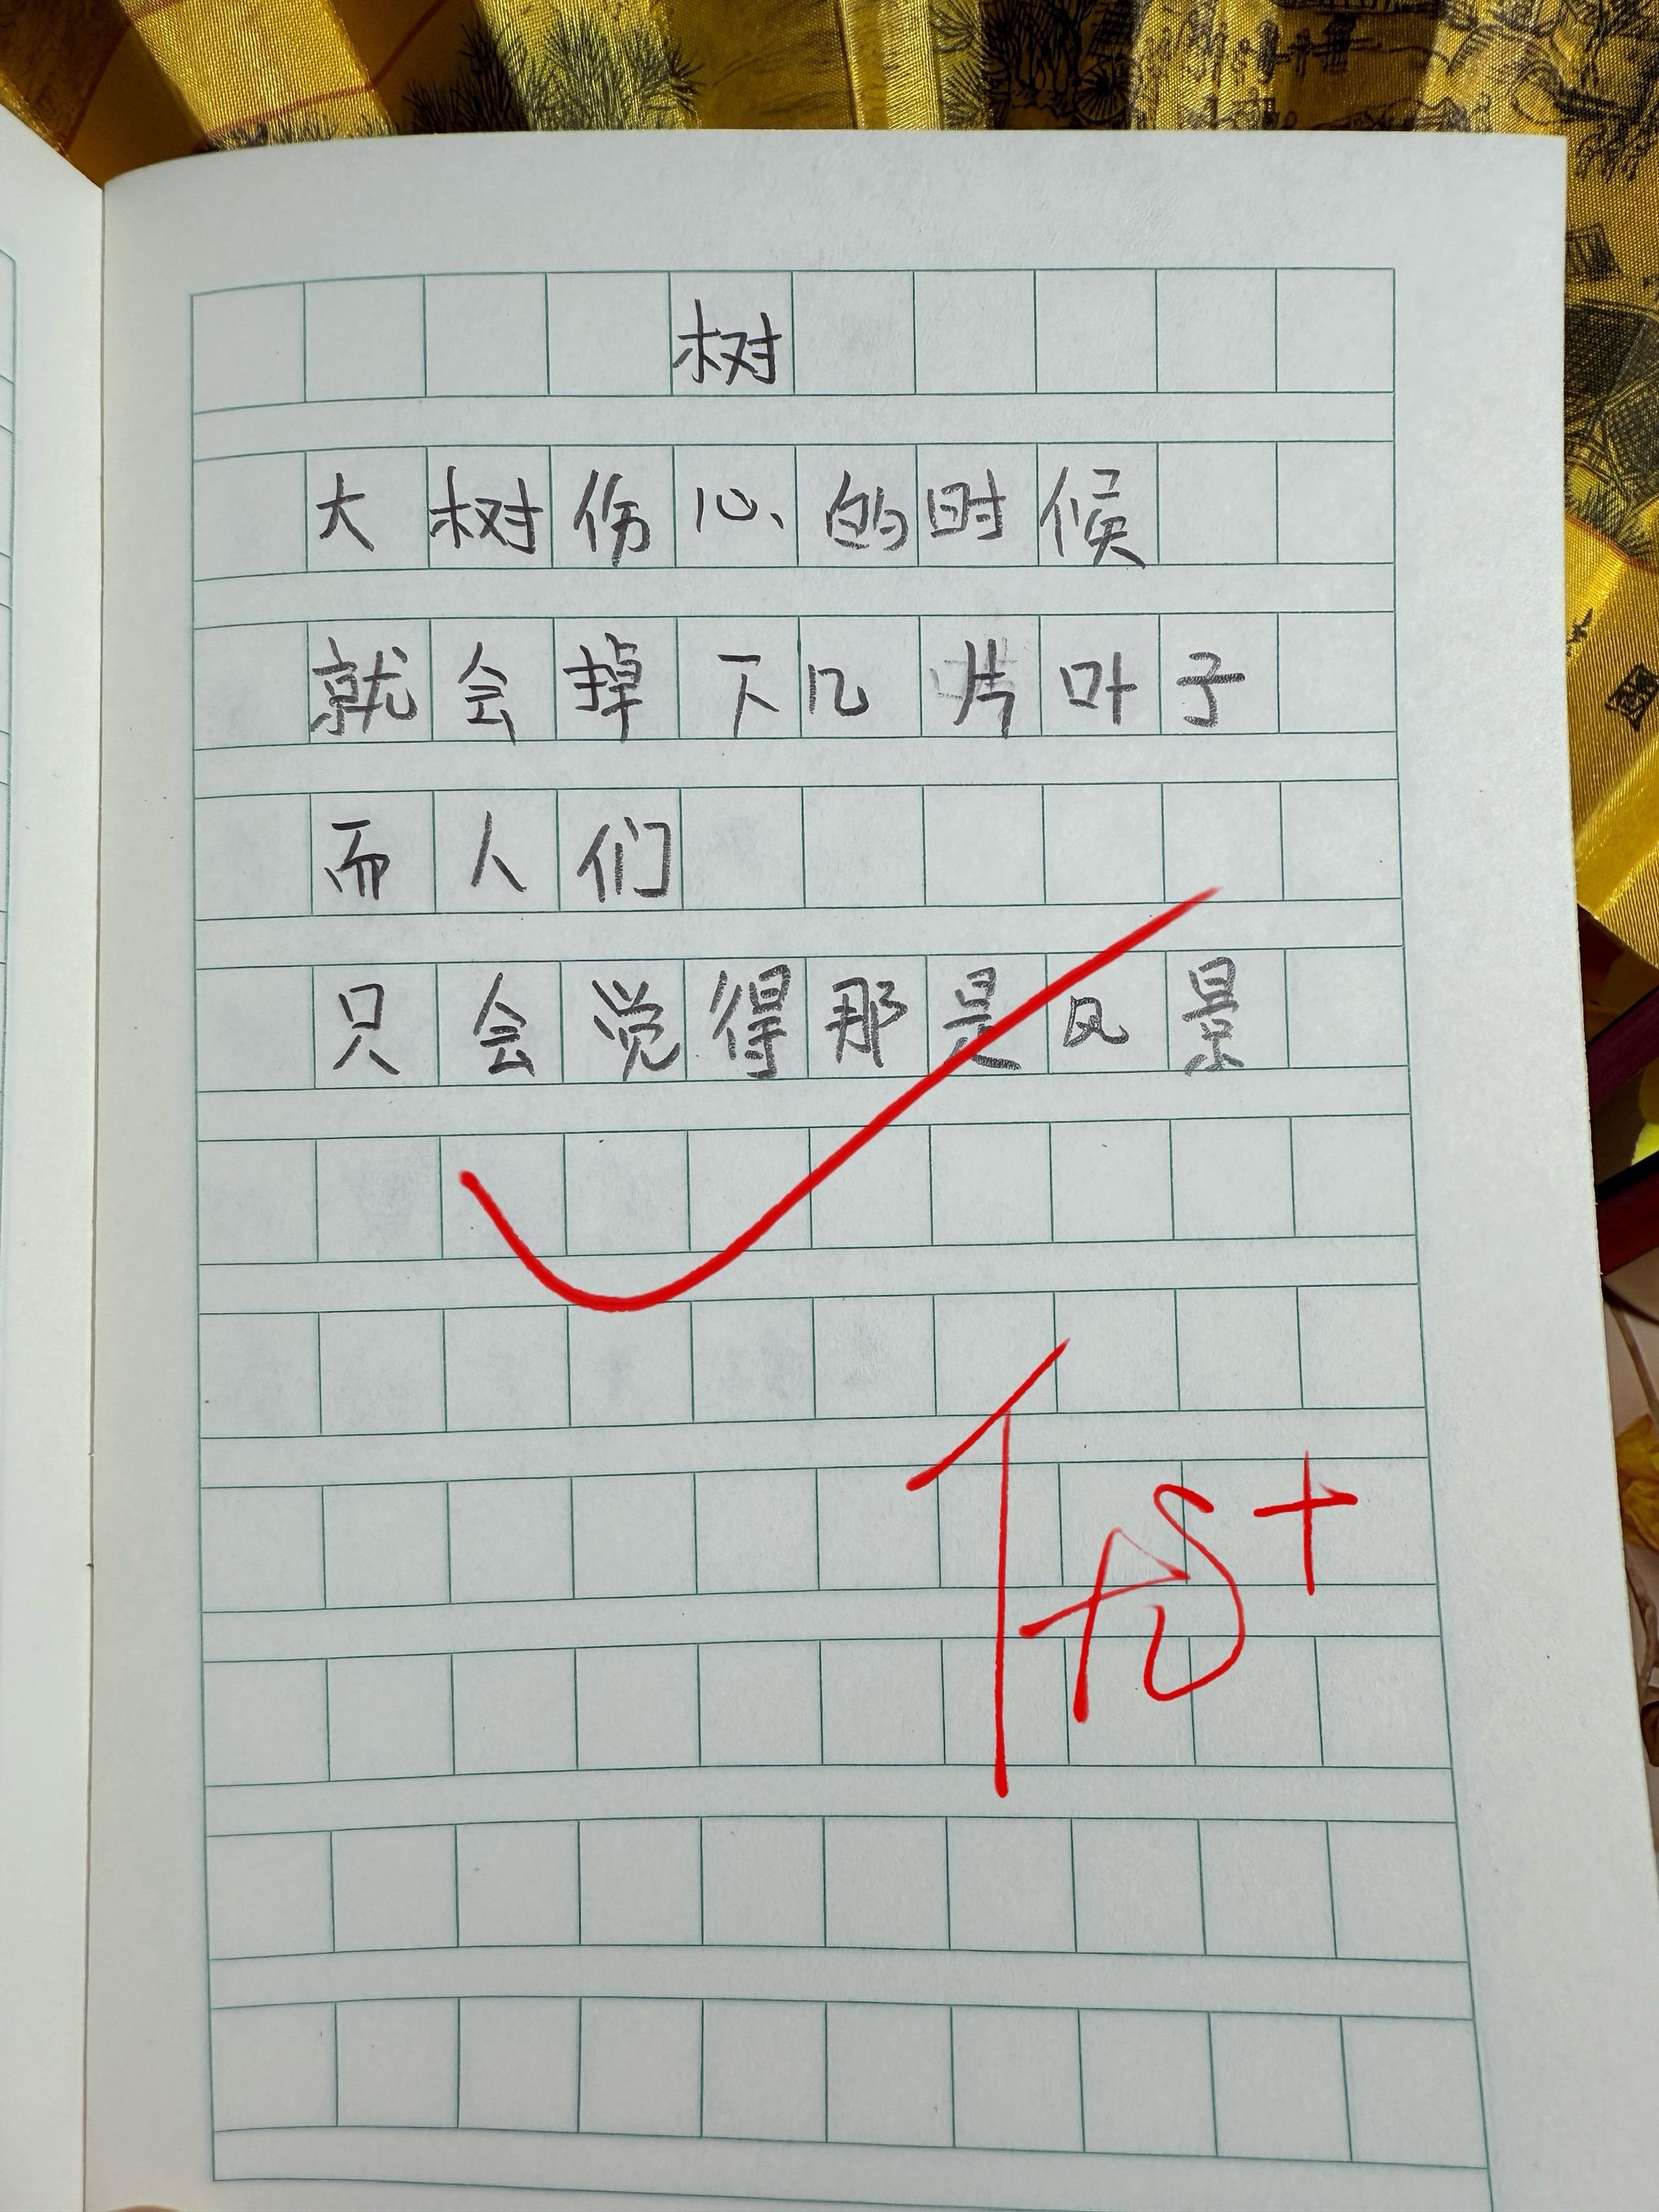 树
大树伤心的时候
就会掉下几片叶子
而人们
只会觉得那是风景
优+